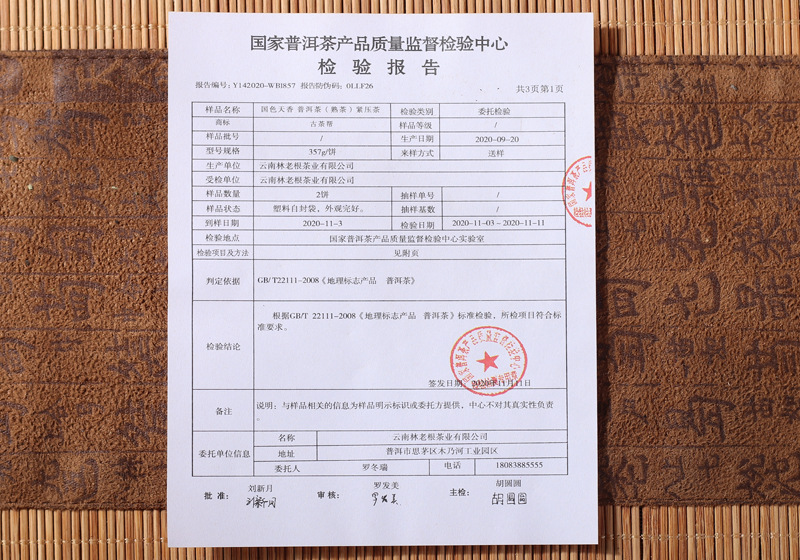 国家普洱茶产品质量监督检验中心
检 验 报 告
报告编号: Y142020-WB1857 报告防伪码: 0LLF26
共3页第1页
样品名称 国色天香 普洱茶（熟茶）紧压茶 检验类别 委托检验
商标 古茶帮 样品等级 /
样品批号 / 生产日期 2020-09-20
型号规格 357g/饼 来样方式 送样
生产单位 云南林老根茶业有限公司
受检单位 云南林老根茶业有限公司
样品数量 2饼 抽样单号 /
样品状态 塑料自封袋，外观完好。 抽样基数 /
到样日期 2020-11-3 检验日期 2020-11-03～2020-11-11
检验地点 国家普洱茶产品质量监督检验中心实验室
检验项目及方法 见附页
判定依据 GB/T22111-2008《地理标志产品 普洱茶》
检验结论 根据GB/T 22111-2008《地理标志产品 普洱茶》标准检验，所检项目符合标
准要求。
签发日期: 2020年11月11日
备注 说明：与样品相关的信息为样品明示标识或委托方提供，中心不对其真实性负责
委托单位信息 名称 云南林老根茶业有限公司
地址 普洱市思茅区木乃河工业园区
委托人 罗冬瑞 电话 18083885555
批 准： 刘新月 审 核： 罗发美 主检： 胡圆圆
刘新月 罗发美 胡圆圆